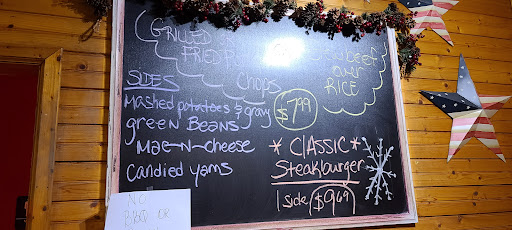 GRILLED
FRIED
beef
over
RICE
Chops
$7.99
SIDES
Mashed potatoes & gravy
green Beans
Mac-N-cheese
Candied yams
* CLASSIC *
Steakburger
1 side $9.69
NO